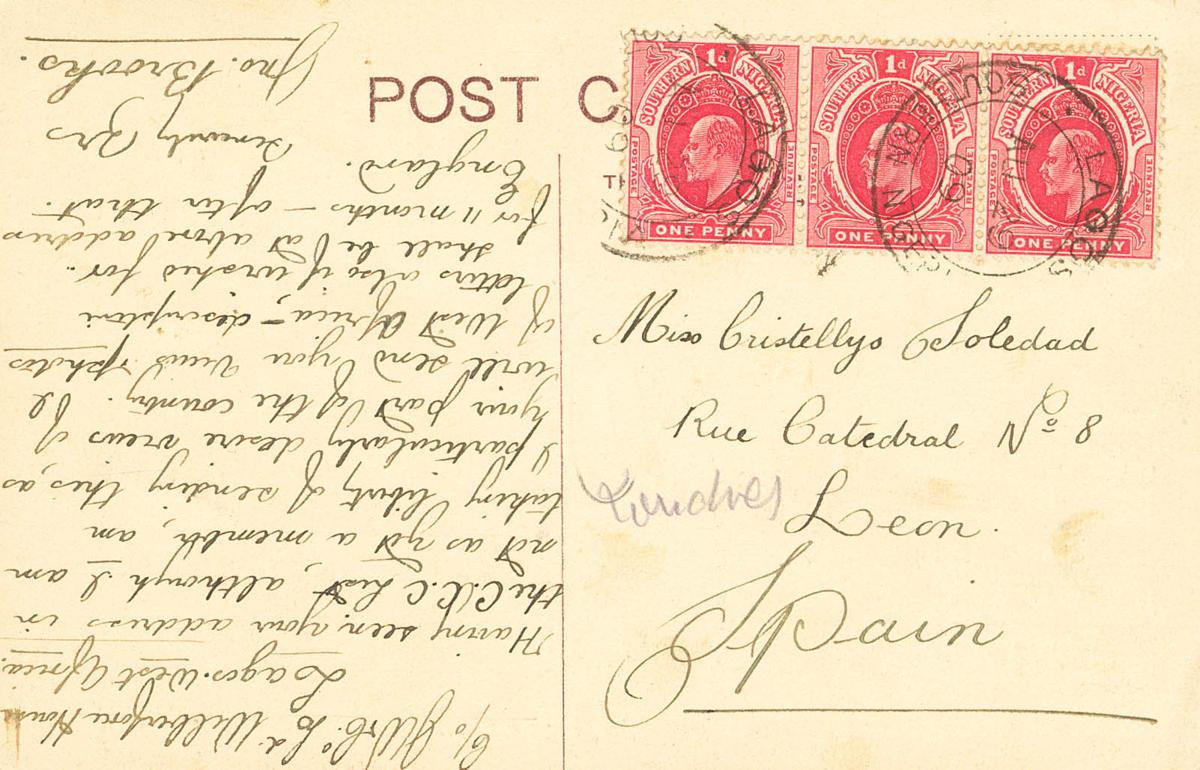 POST C
TH
1d
SOUTHERN NIGERIA
POSTAGE REVENUE
ONE PENNY
1d
SOUTHERN NIGERIA
POSTAGE REVENUE
ONE PENNY
1d
SOUTHERN NIGERIA
POSTAGE
ONE PENNY
LAGOS
SOUTHERN NIGERI
AU
09
Miss Cristellys Soledad
Rue Catedral No 8
Londres
Leon.
Spain
c/o Ld Wilberforce House
Lagos. West Africa.
Having seen your address in
the C.C.C List, although I am
not as yet a member, am
taking liberty of sending this, as
I particularly desire views of
your part of the country. I
will send you views & photos
of West Africa - description
letters also if wished for.
Shall be at above address
for 11 months - after that.
England.
Sincerely Yrs
Jno. Brooks.